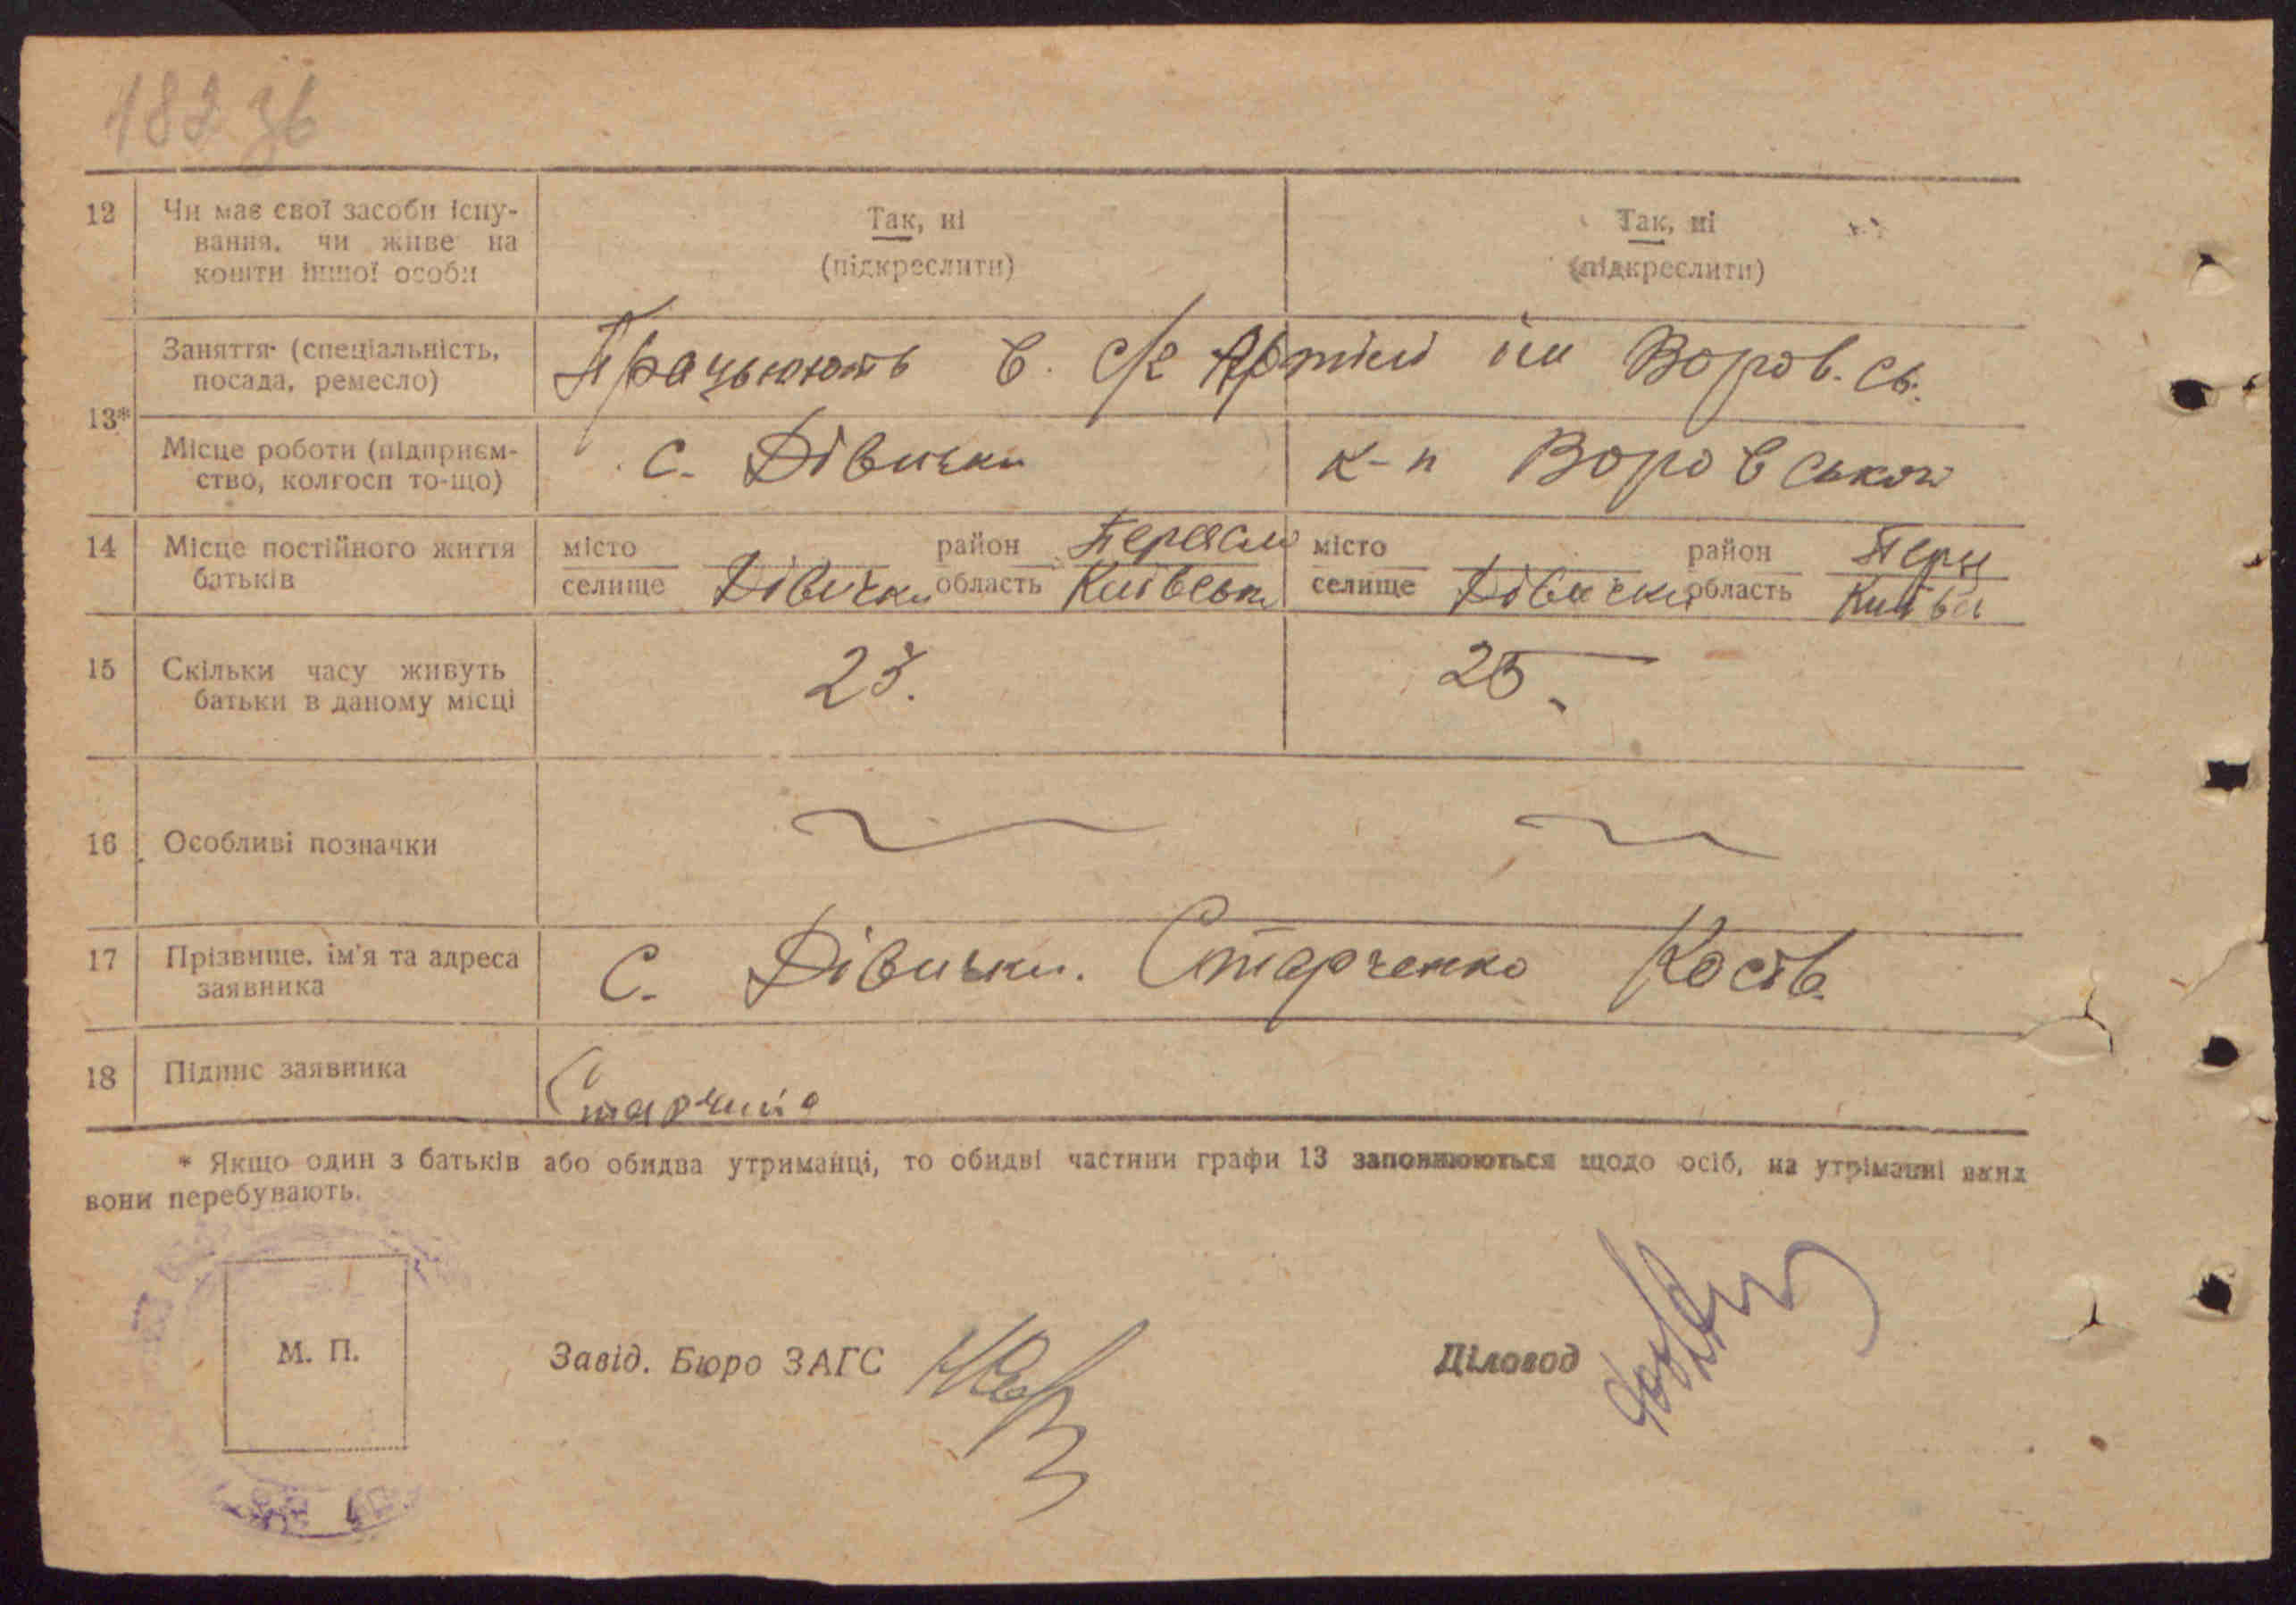 182 зв
12 Чи має свої засоби існу- Так, ні Так, ні
вання, чи живе на
кошти іншої особи (підкреслити) (підкреслити)
Заняття (спеціальність, Працьюють в. с/г Артілі ім Воров. сь.
посада, ремесло)
13*
Місце роботи (підприєм- с. Дівички к-п Воровського
ство, колгосп то-що)
14 Місце постійного життя місто район Переясл місто район Пере
батьків селище Дівички область Київськ селище Дівички область Київсь
15 Скільки часу живуть 23. 25
батьки в даному місці
16 Особливі позначки
17 Прізвище, ім'я та адреса с. Дівички. Старченко Костя.
заявника
18 Підпис заявника Старченко
* Якщо один з батьків або обидва утриманці, то обидві частини графи 13 заповнюються щодо осіб, на утріманні яких
вони перебувають.
М. П. Завід. Бюро ЗАГС Діловод